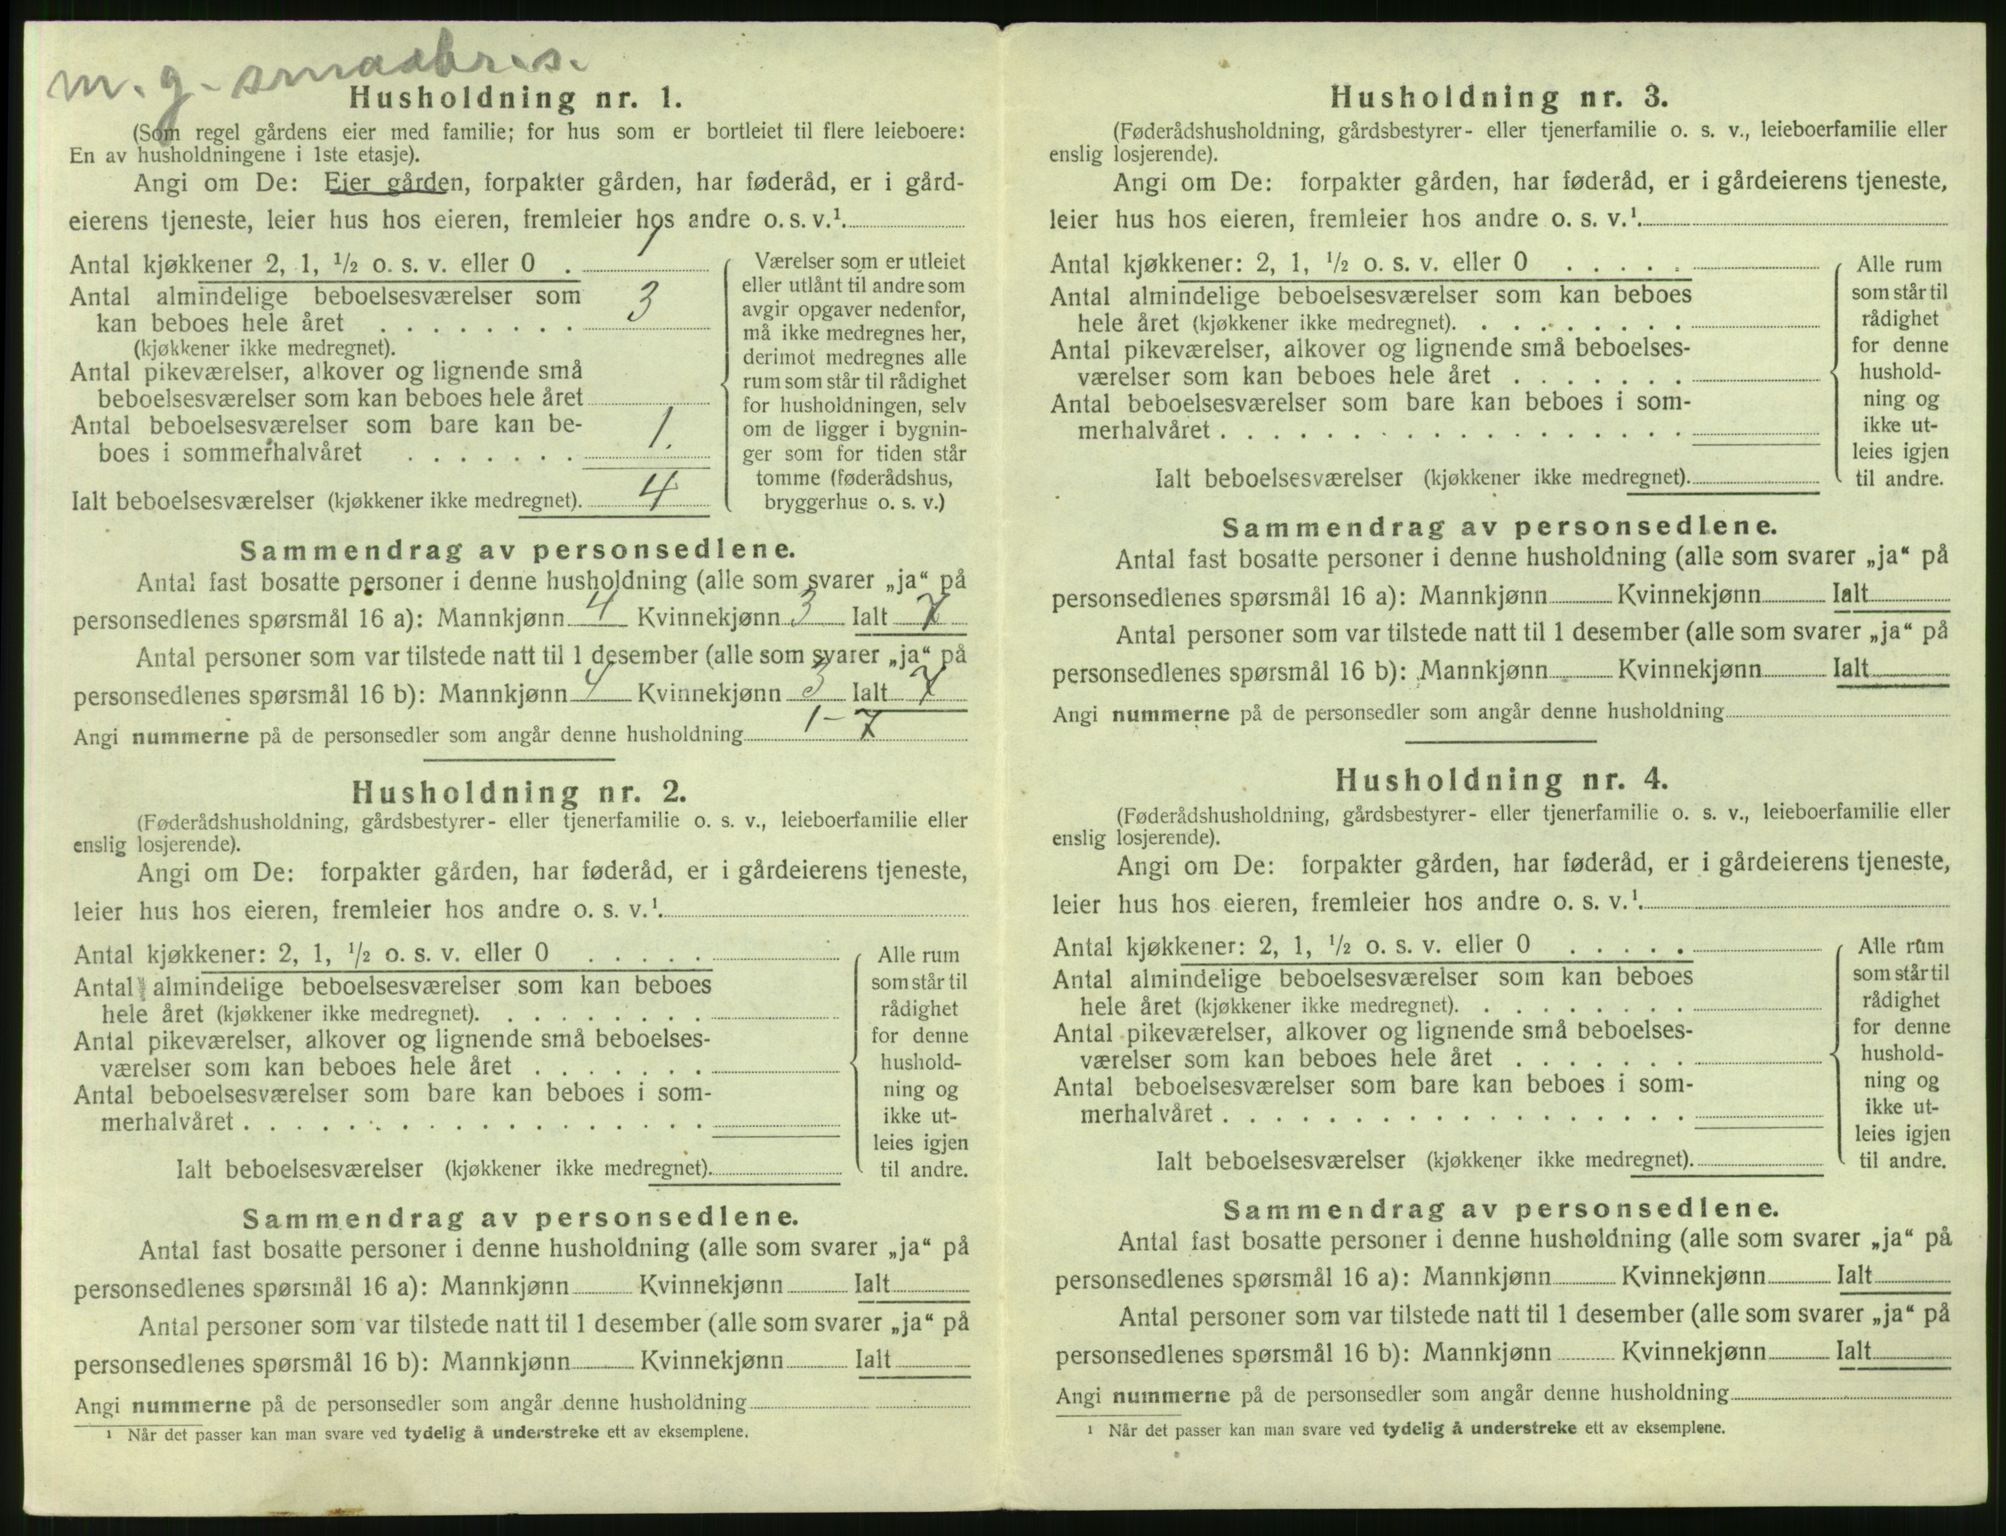 m. g. smaabr. s.
Husholdning nr. 1.
(Som regel gårdens eier med familie; for hus som er bortleiet til flere leieboere:
En av husholdningene i 1ste etasje).
Angi om De: Eier gården, forpakter gården, har føderåd, er i gård-
eierens tjeneste, leier hus hos eieren, fremleier hos andre o. s. v.¹.
Antal kjøkkener 2, 1, ½ o. s. v. eller 0 . 1
Antal almindelige beboelsesværelser som
kan beboes hele året . . . . . . . . 3
(kjøkkener ikke medregnet).
Antal pikeværelser, alkover og lignende små
beboelsesværelser som kan beboes hele året
Antal beboelsesværelser som bare kan be-
boes i sommerhalvåret . . . . . . . 1.
Ialt beboelsesværelser (kjøkkener ikke medregnet). 4
Værelser som er utleiet
eller utlånt til andre som
avgir opgaver nedenfor,
må ikke medregnes her,
derimot medregnes alle
rum som står til rådighet
for husholdningen, selv
om de ligger i bygnin-
ger som for tiden står
tomme (føderådshus,
bryggerhus o. s. v.)
Sammendrag av personsedlene.
Antal fast bosatte personer i denne husholdning (alle som svarer „ja“ på
personsedlenes spørsmål 16 a): Mannkjønn 4 Kvinnekjønn 3 Ialt 7
Antal personer som var tilstede natt til 1 desember (alle som svarer „ja“ på
personsedlenes spørsmål 16 b): Mannkjønn 4 Kvinnekjønn 3 Ialt 7
Angi nummerne på de personsedler som angår denne husholdning 1-7
Husholdning nr. 2.
(Føderådshusholdning, gårdsbestyrer- eller tjenerfamilie o. s. v., leieboerfamilie eller
enslig losjerende).
Angi om De: forpakter gården, har føderåd, er i gårdeierens tjeneste,
leier hus hos eieren, fremleier hos andre o. s. v.¹.
Antal kjøkkener: 2, 1, ½ o. s. v. eller 0 . . . . .
Antal almindelige beboelsesværelser som kan beboes
hele året (kjøkkener ikke medregnet). . . . . . . . .
Antal pikeværelser, alkover og lignende små beboelses-
værelser som kan beboes hele året . . . . . . .
Antal beboelsesværelser som bare kan beboes i som-
merhalvåret . . . . . . . . . . . . . . . . . .
Ialt beboelsesværelser (kjøkkener ikke medregnet).
Alle rum
som står til
rådighet
for denne
hushold-
ning og
ikke ut-
leies igjen
til andre.
Sammendrag av personsedlene.
Antal fast bosatte personer i denne husholdning (alle som svarer „ja“ på
personsedlenes spørsmål 16 a): Mannkjønn Kvinnekjønn Ialt
Antal personer som var tilstede natt til 1 desember (alle som svarer „ja“ på
personsedlenes spørsmål 16 b): Mannkjønn Kvinnekjønn Ialt
Angi nummerne på de personsedler som angår denne husholdning
¹ Når det passer kan man svare ved tydelig å understreke ett av eksemplene.
Husholdning nr. 3.
(Føderådshusholdning, gårdsbestyrer- eller tjenerfamilie o. s. v., leieboerfamilie eller
enslig losjerende).
Angi om De: forpakter gården, har føderåd, er i gårdeierens tjeneste,
leier hus hos eieren, fremleier hos andre o. s. v.¹.
Antal kjøkkener: 2, 1, ½ o. s. v. eller 0 . . . . .
Antal almindelige beboelsesværelser som kan beboes
hele året (kjøkkener ikke medregnet). . . . . . . . .
Antal pikeværelser, alkover og lignende små beboelses-
værelser som kan beboes hele året . . . . . . .
Antal beboelsesværelser som bare kan beboes i som-
merhalvåret . . . . . . . . . . . . . . . . . .
Ialt beboelsesværelser (kjøkkener ikke medregnet).
Alle rum
som står til
rådighet
for denne
hushold-
ning og
ikke ut-
leies igjen
til andre.
Sammendrag av personsedlene.
Antal fast bosatte personer i denne husholdning (alle som svarer „ja“ på
personsedlenes spørsmål 16 a): Mannkjønn Kvinnekjønn Ialt
Antal personer som var tilstede natt til 1 desember (alle som svarer „ja“ på
personsedlenes spørsmål 16 b): Mannkjønn Kvinnekjønn Ialt
Angi nummerne på de personsedler som angår denne husholdning
Husholdning nr. 4.
(Føderådshusholdning, gårdsbestyrer- eller tjenerfamilie o. s. v., leieboerfamilie eller
enslig losjerende).
Angi om De: forpakter gården, har føderåd, er i gårdeierens tjeneste,
leier hus hos eieren, fremleier hos andre o. s. v.¹.
Antal kjøkkener: 2, 1, ½ o. s. v. eller 0 . . . . .
Antal almindelige beboelsesværelser som kan beboes
hele året (kjøkkener ikke medregnet). . . . . . . . .
Antal pikeværelser, alkover og lignende små beboelses-
værelser som kan beboes hele året . . . . . . .
Antal beboelsesværelser som bare kan beboes i som-
merhalvåret . . . . . . . . . . . . . . . . . .
Ialt beboelsesværelser (kjøkkener ikke medregnet).
Alle rum
som står til
rådighet
for denne
hushold-
ning og
ikke ut-
leies igjen
til andre.
Sammendrag av personsedlene.
Antal fast bosatte personer i denne husholdning (alle som svarer „ja“ på
personsedlenes spørsmål 16 a): Mannkjønn Kvinnekjønn Ialt
Antal personer som var tilstede natt til 1 desember (alle som svarer „ja“ på
personsedlenes spørsmål 16 b): Mannkjønn Kvinnekjønn Ialt
Angi nummerne på de personsedler som angår denne husholdning
¹ Når det passer kan man svare ved tydelig å understreke ett av eksemplene.